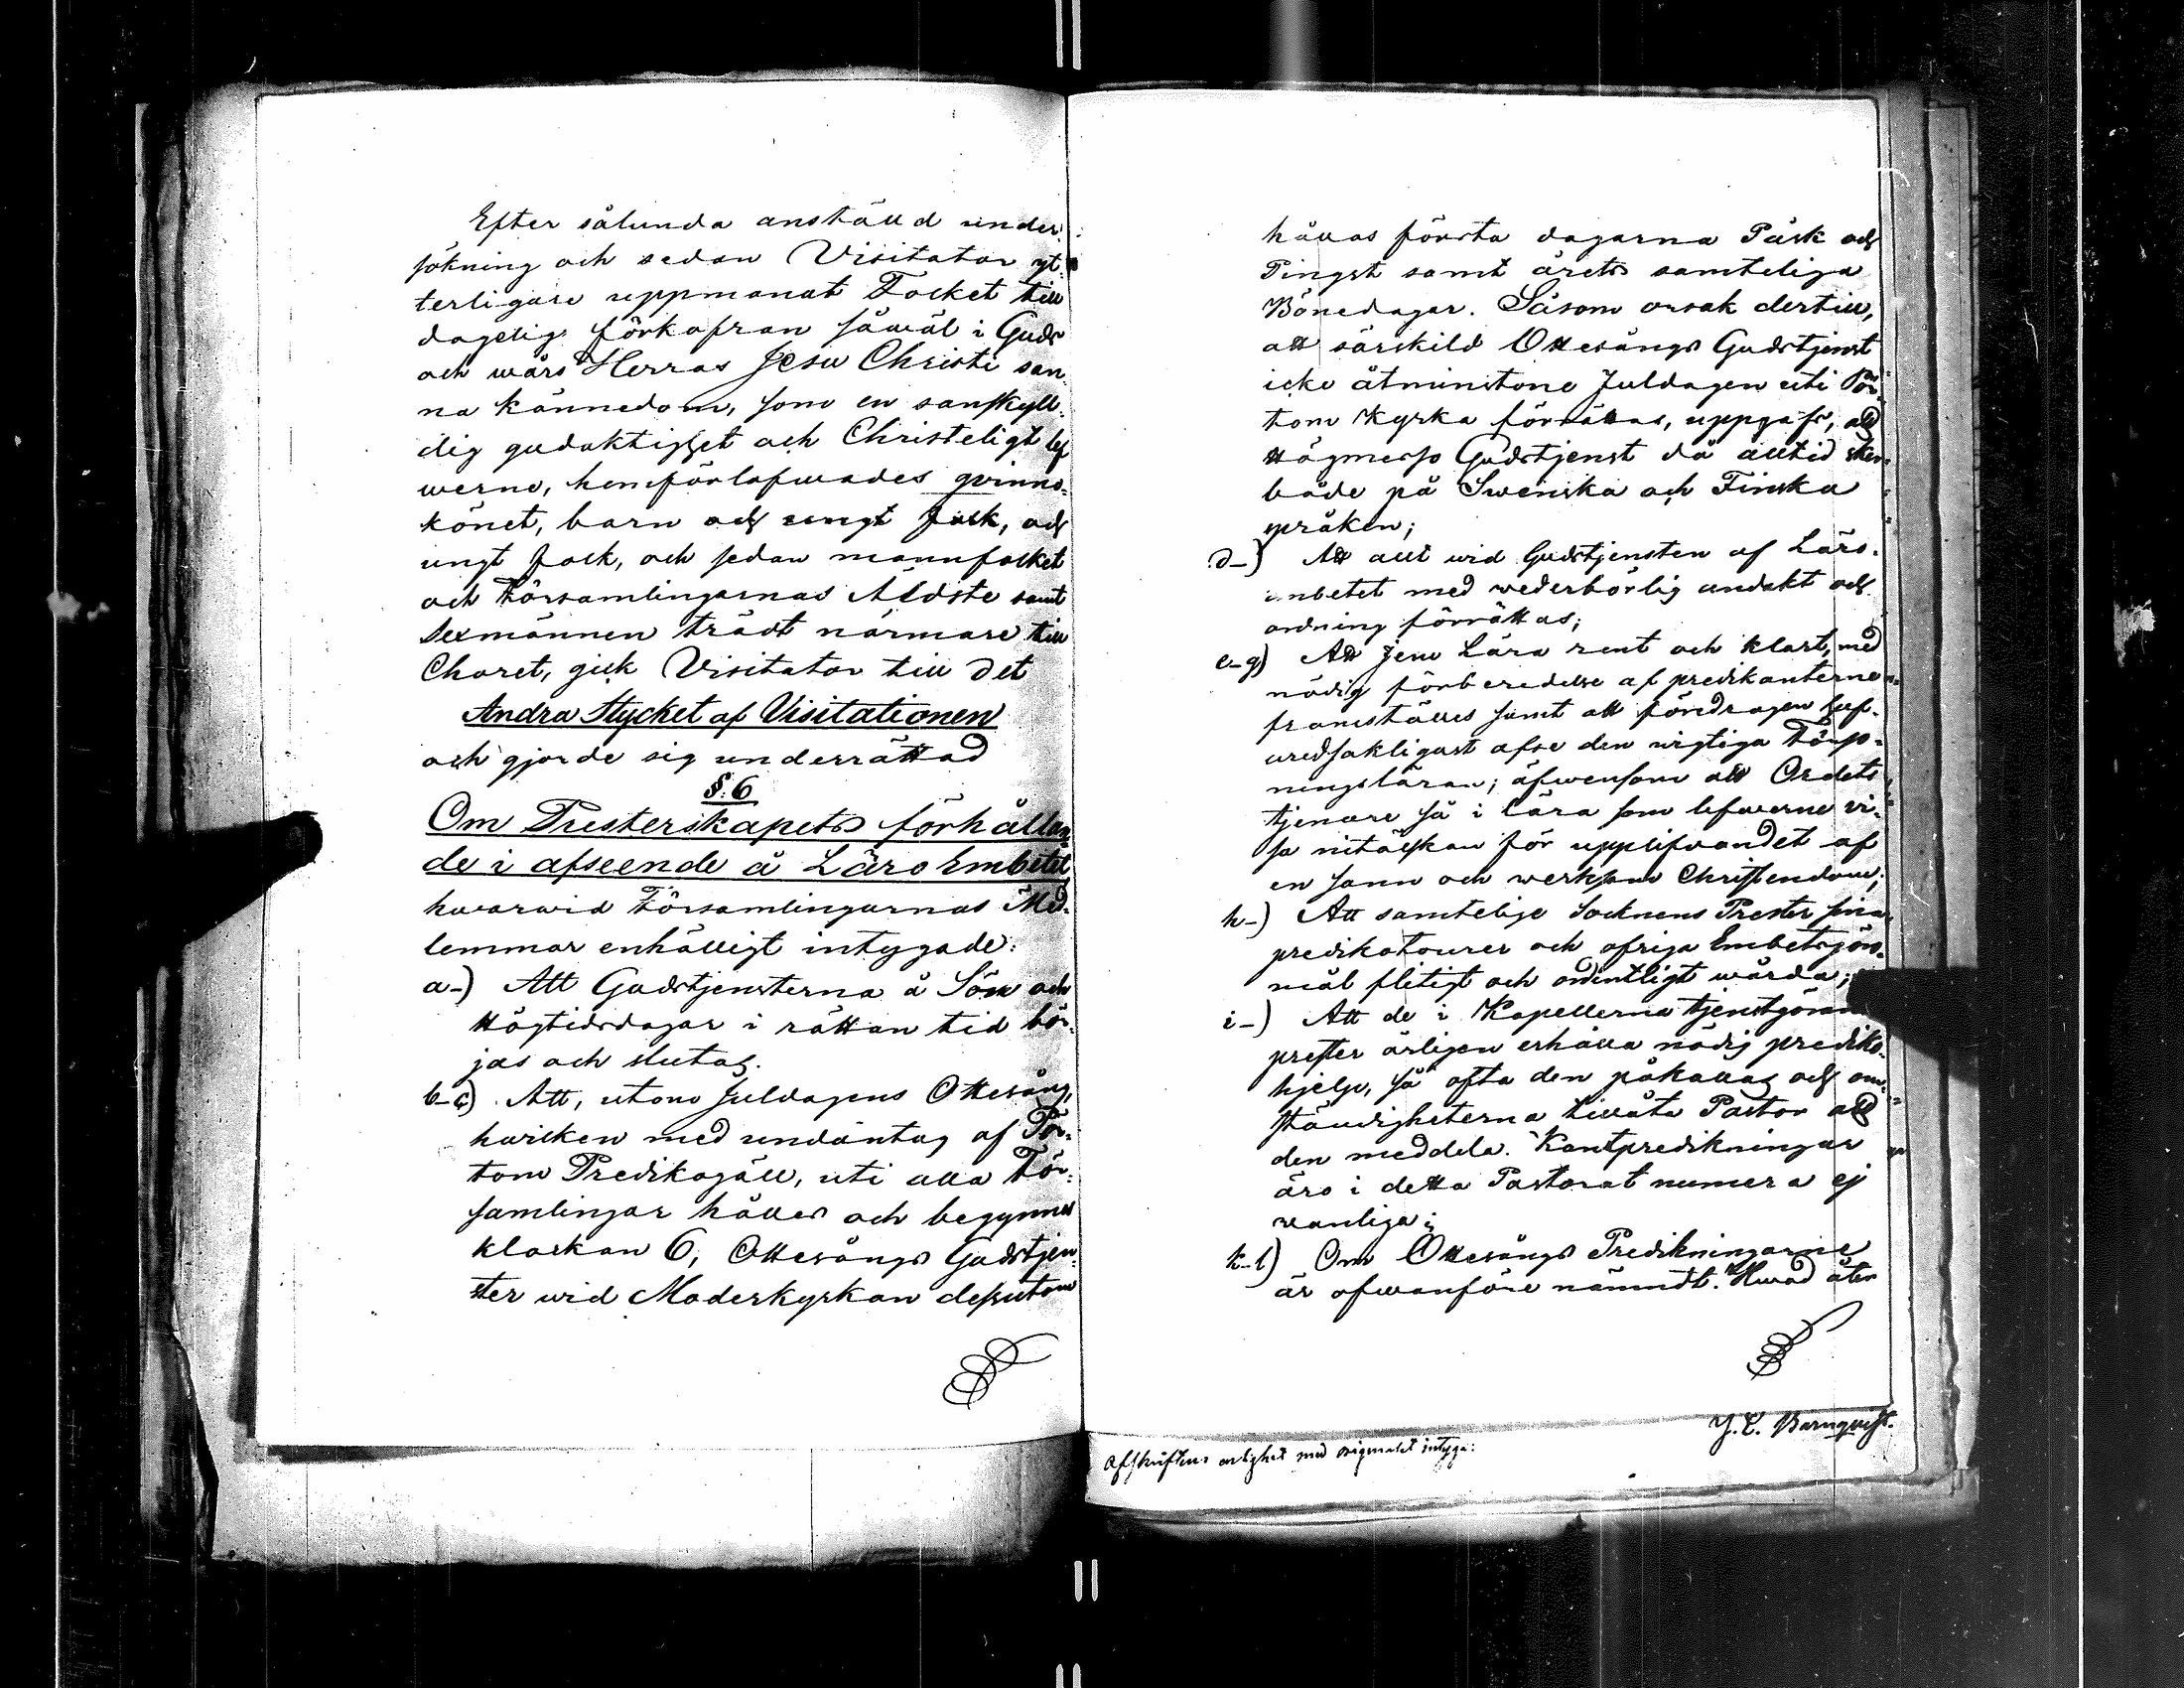 Efter sålunda anställd under-
sökning och sedan Visitator yt-
terligare uppmanat Folket till
dagelig förkofran såwäl i Guds
och wårs Herras Jesu Christi san-
na kännedom, som en sanskyll-
dig gudaktighet och Christeligt lef-
werne, hemförlofwades qvinno-
könet, barn och ungt folk, och
ungt folk, och sedan mannfolket
och Församlingarnas Äldste samt
Sexmännen trädt närmare till
Choret, gick Visitator till det
Andra Stycket af Visitationen
och gjorde sig underrättad
§. 6
Om Presterskapets förhållan-
de i afseende å Läro Embetet
hwarwid Församlingarnas Med-
lemmar enhälligt intygade:
a-) Att Gudstjensterna å Sön och
Högtidsdagar i rättan tid bör-
jas och slutas.
b-c) Att, utom Juldagens Ottesång,
hwilken med undantag af Pör-
tom Predikogäll, uti alla För-
samlingar hålles och begynnes
klockan 6, Ottesångs Gudstjen-
ster wid Moderkyrkan dessutom
hållas första dagarna Påsk och
Pingst samt årets samteliga
Bönedagar. Såsom orsak dertill,
att särskild Ottesångs Gudstjenst
icke åtminstone Juldagen uti Pör-
tom Kyrka förrättas, uppgafs, att
Högmesso Gudstjenst då alltid sker
både på Swenska och Finska
språken;
d-) Att allt wid Gudstjensten af Läro-
embetet med wederbörlig andakt och
ordning förrättas;
e-g) Att Jem Lära rent och klart, med
nödig förberedelse af predikanterne
framställes samt att föredragen huf-
wudsakligast afse den wigtiga Förso-
ningsläran; äfwensom att Ordets
tjenare så i Lära som lefwerne wi-
sa nitälskan för upplifwandet af
en sann och werksam Christendom;
h-) Att samtelige Socknens Prester sina
predikotourer och öfriga Embetsgöro-
mål flitigt och ordentligt wårda;
i-) Att de i Kapellerna tjenstgörande
prester årligen erhålla nödig prediko-
hjelp, så ofta den påkallas och om-
ständigheterna tillåta Pastor att
den meddela. Kontpredikningar
äro i detta Pastorat numera ej
wanliga;
k-l) Om Ottesångs Predikningarne
är ofwanföre nämndt. Hwad åter
Afskriftens enlighet med originalet intyga: